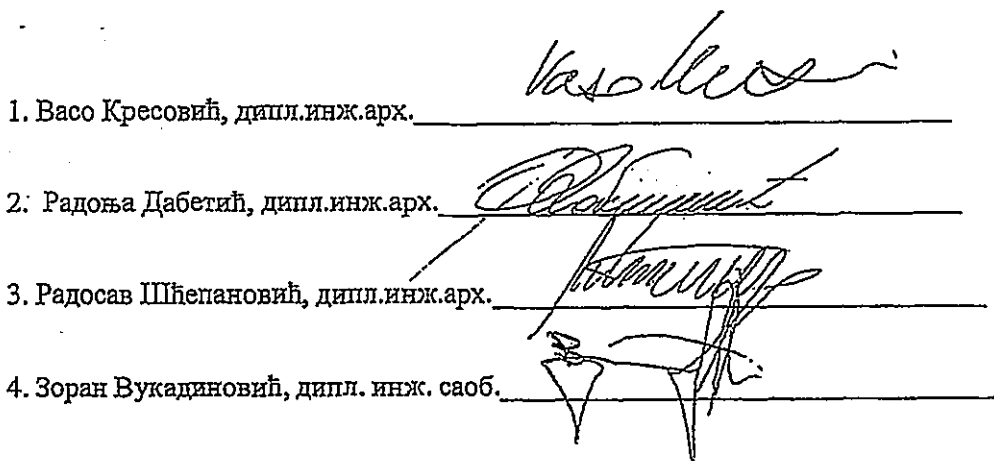 1. Васо Кресовић, дипл.инж.арх.
2. Радоња Дабетић, дипл.инж.арх.
3. Радосав Шћепановић, дипл.инж.арх.
4. Зоран Вукадиновић, дипл. инж. саоб.